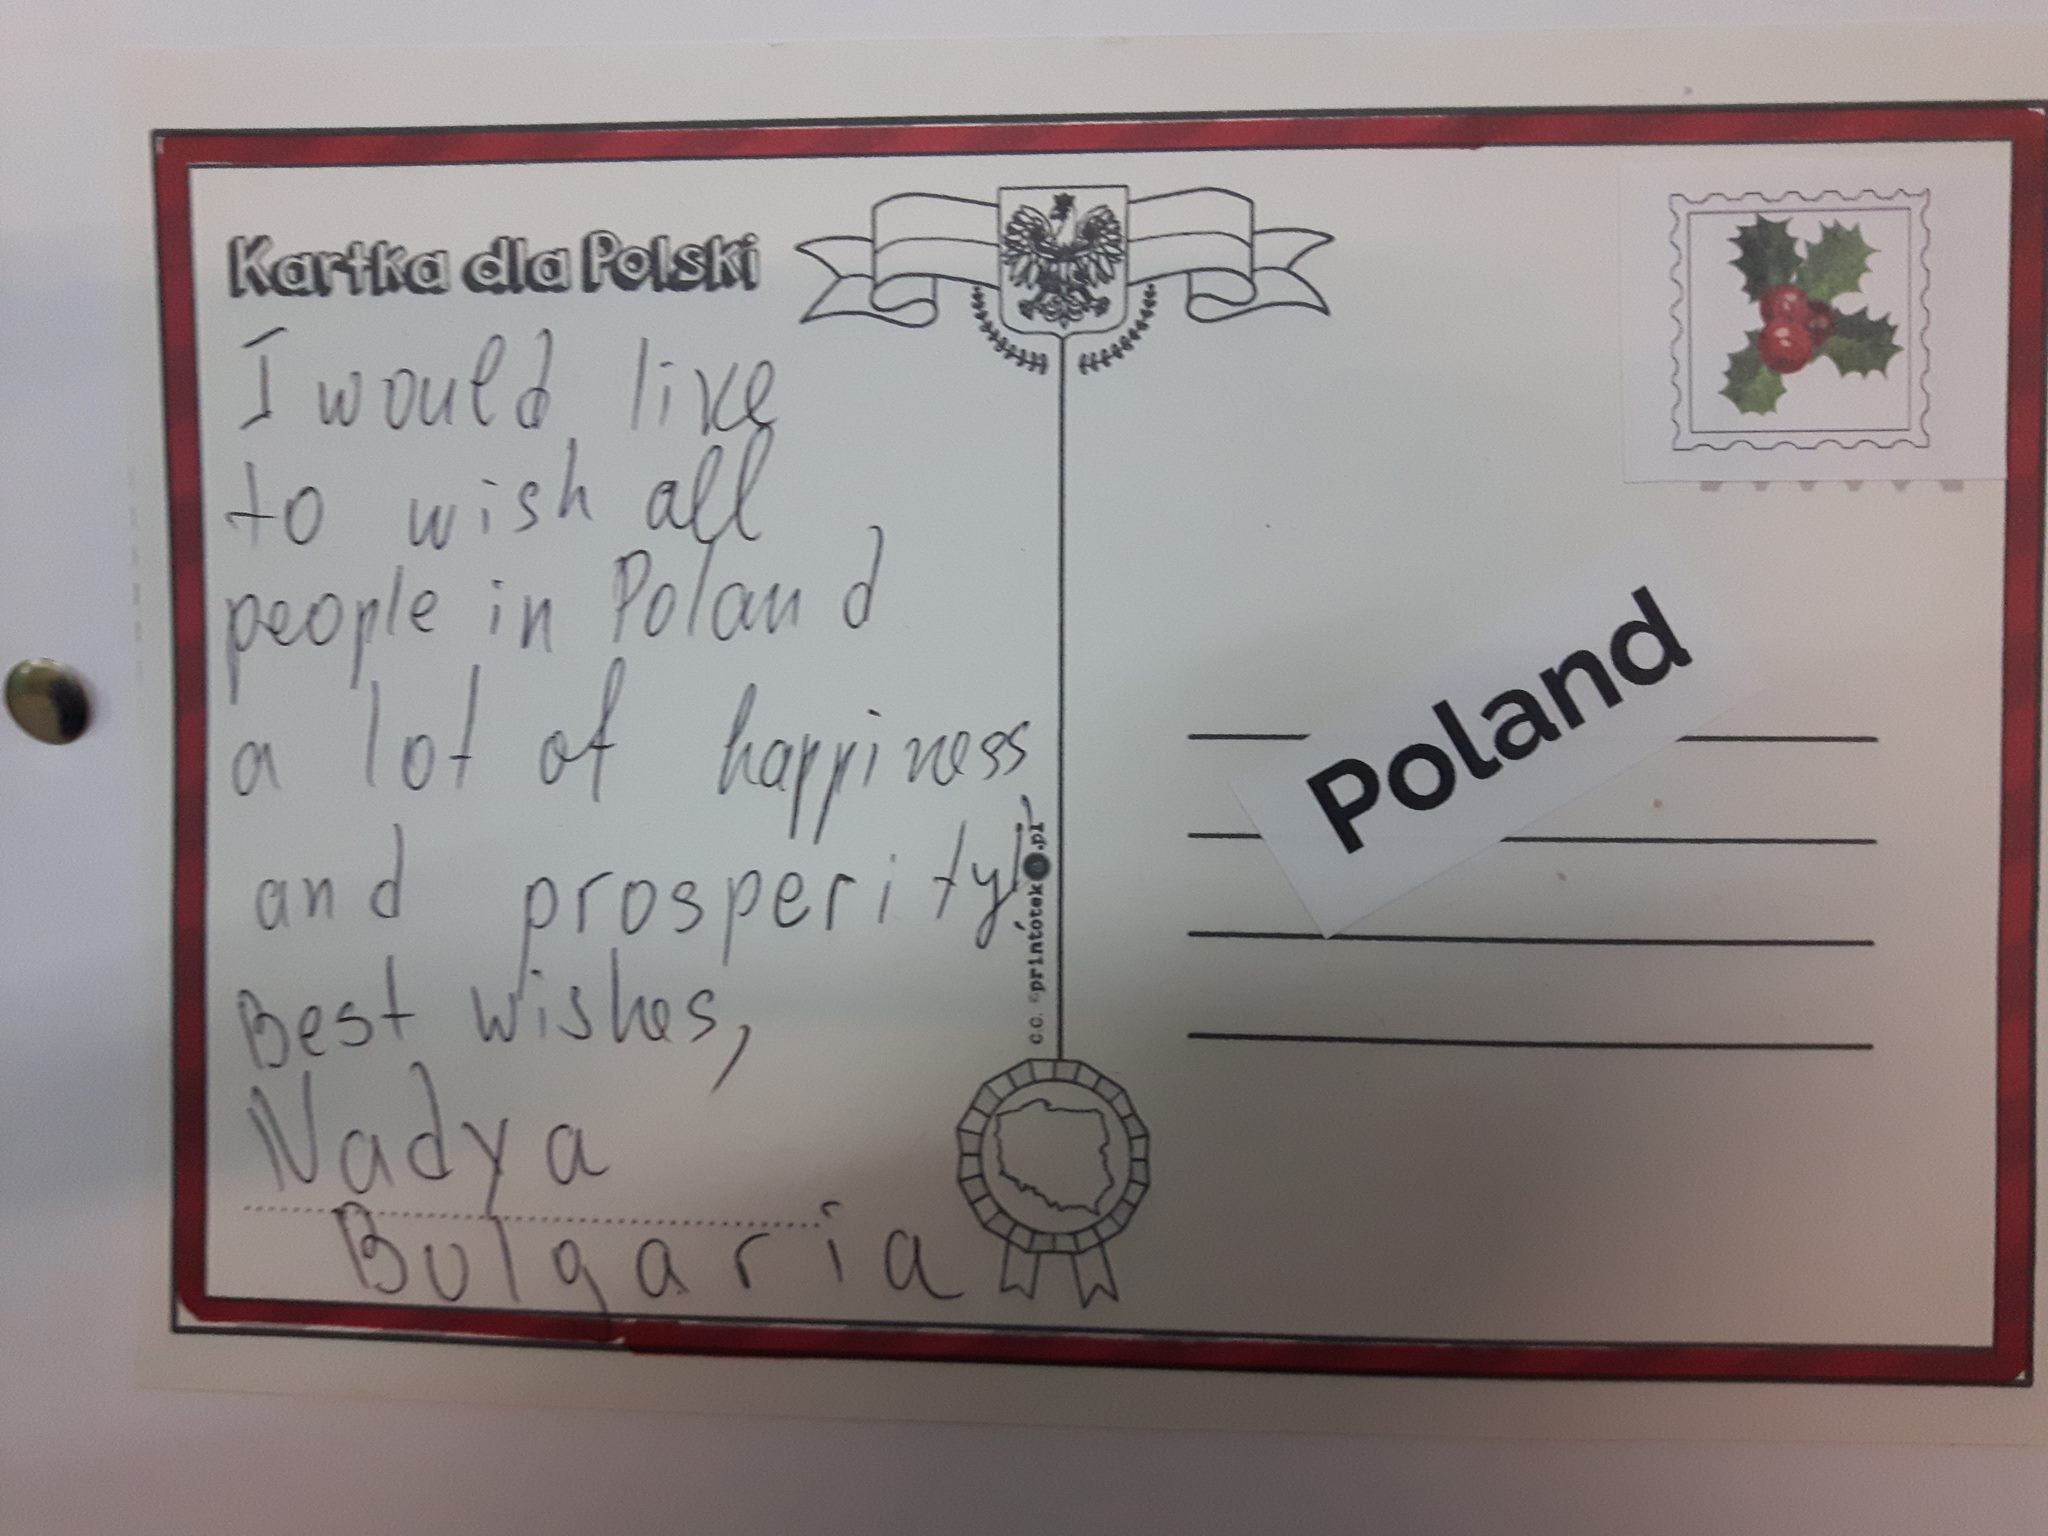 Kartka dla Polski
I would like
to wish all
people in Poland
a lot of happiness
and prosperity!
Best wishes,
Nadya
Bulgaria
c.c. ©printoteka.pl
Poland